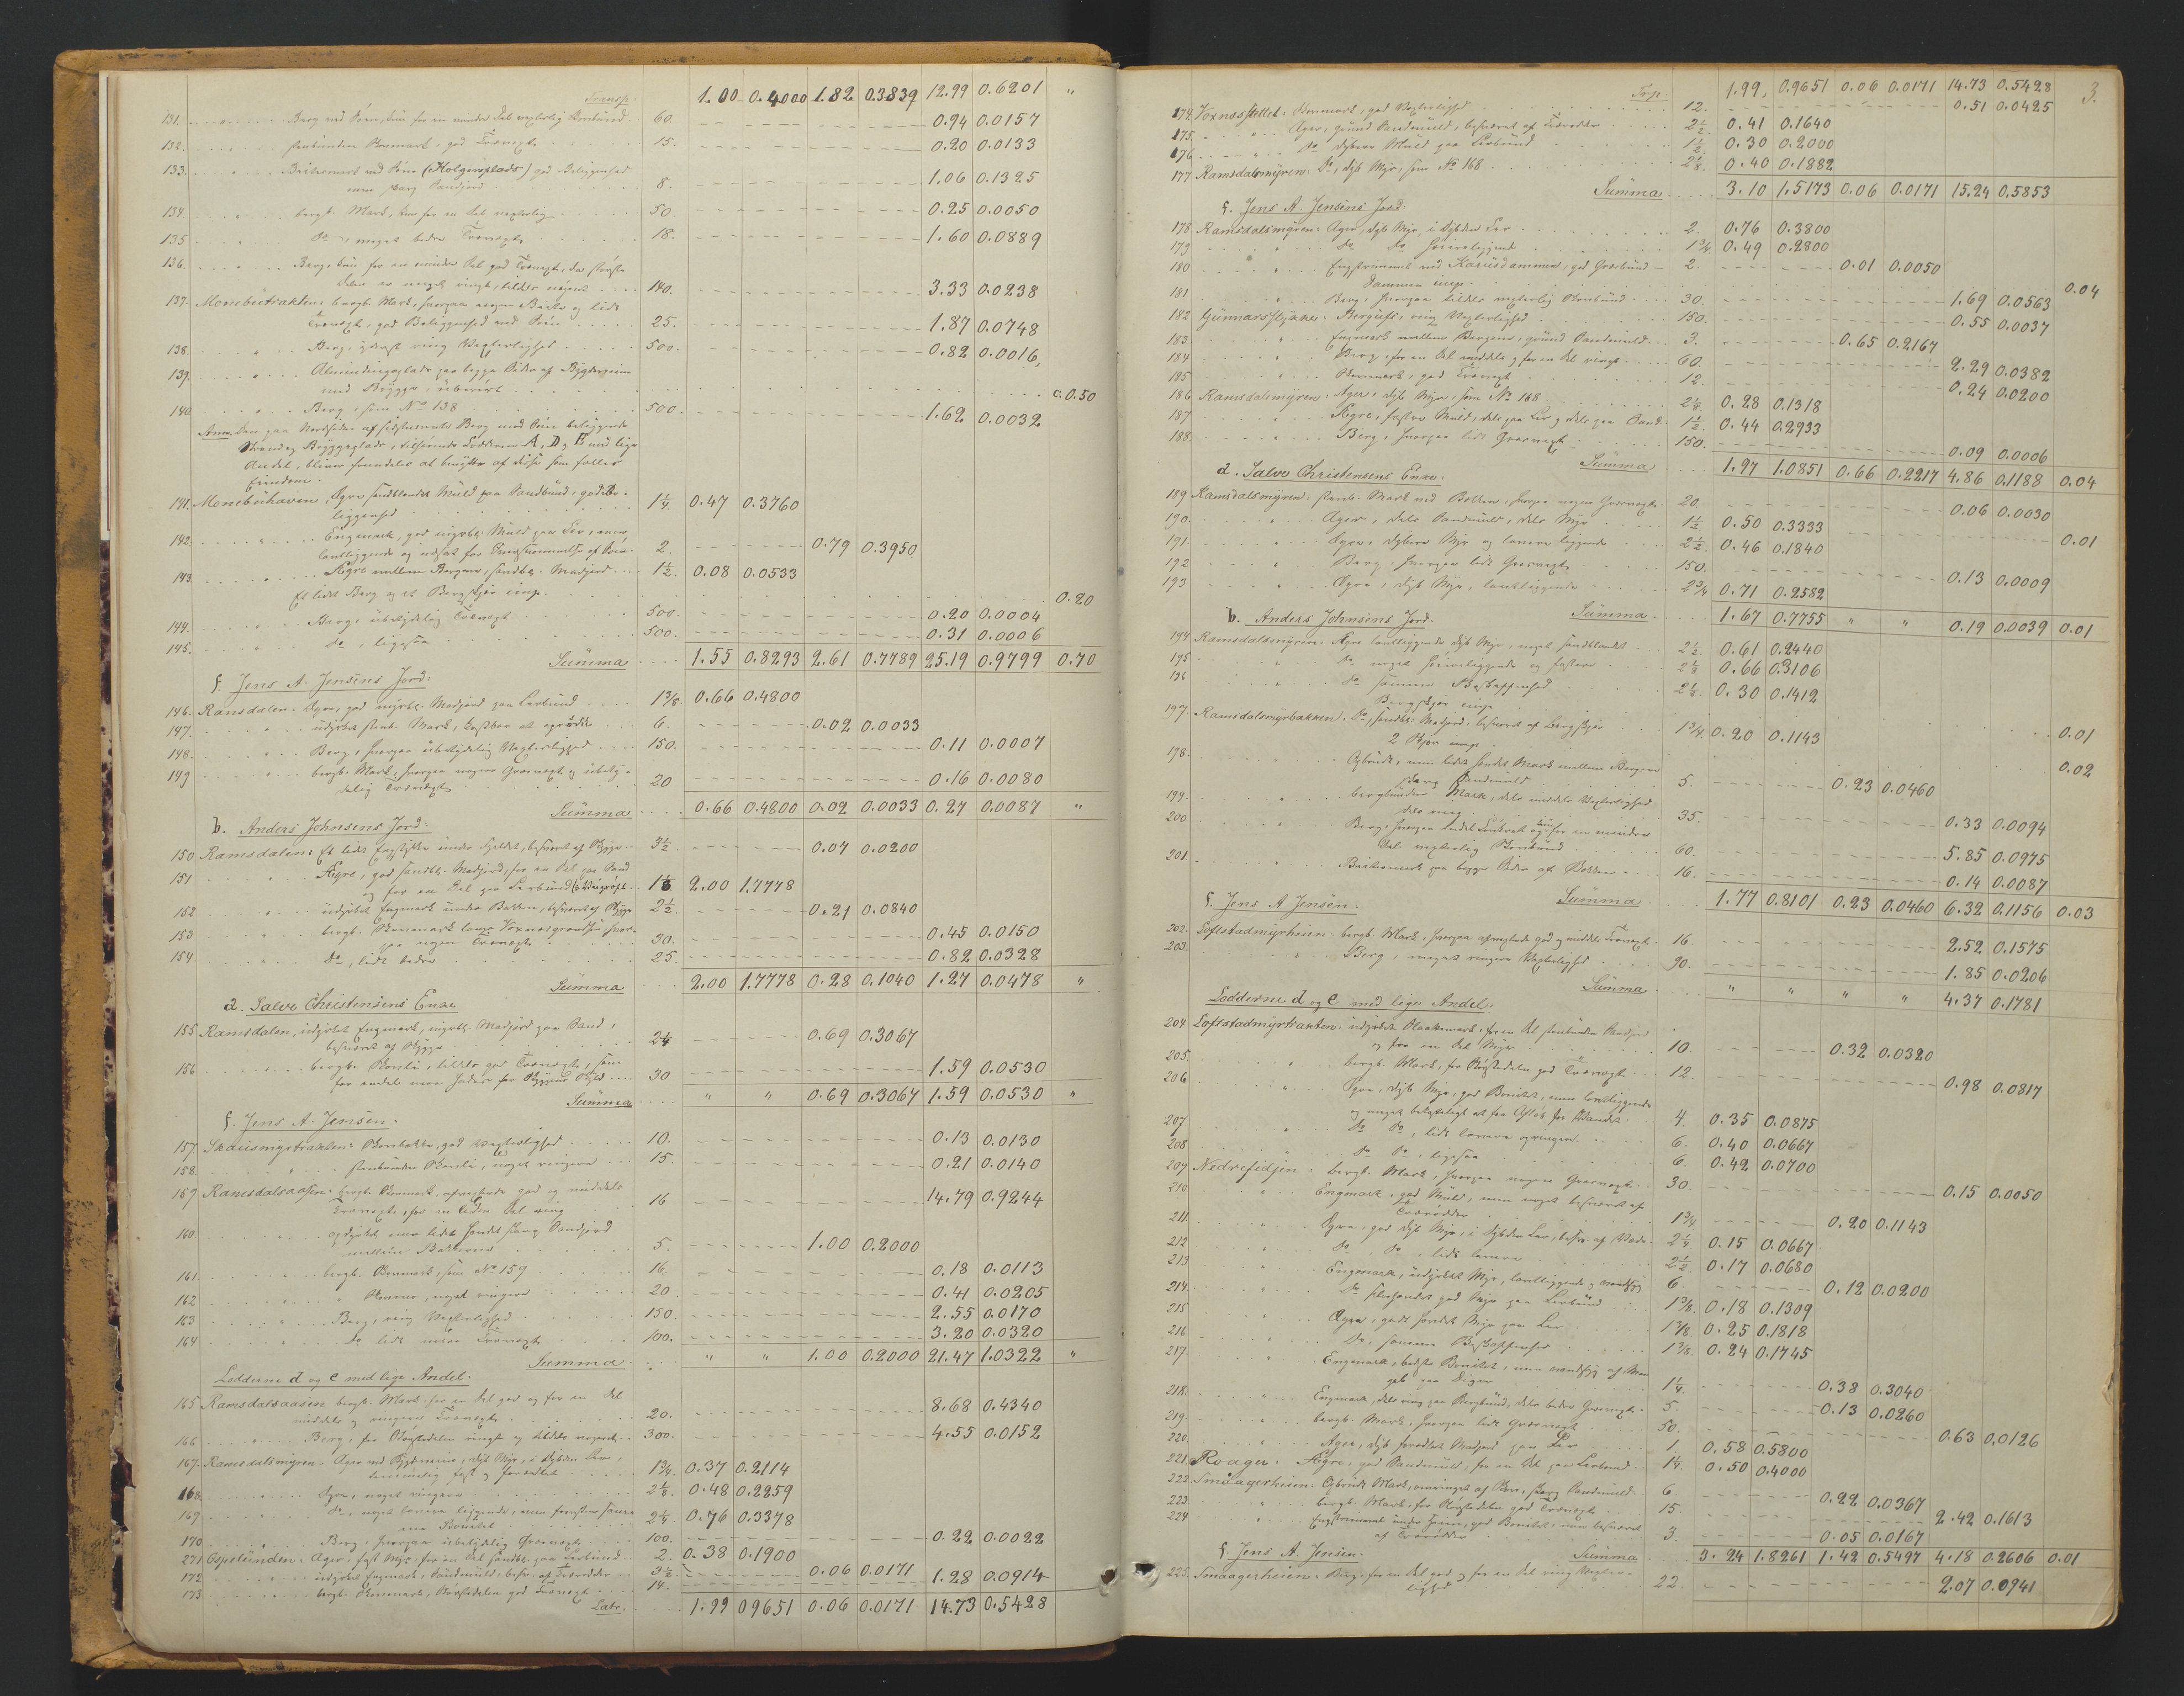 Transp. 1.00 0.4000 1.82 0.3839 12.99 0.6201 "
131. 60. 0.94 0.0157
132. 15. 0.20 0.0133
133. (Holgersplads) god Beliggenhed
8. 1.06 0.1325
134. bergb. Mark, 50. 0.25 0.0050
135 Do, meget bedre Trævegt 18. 1.60 0.0889
136. Berg,
140. 3.33 0.0238
137. bergb. Mark, hvorpaa nogen Birke og lidt
Trævegt, god Beliggenhed ved 25. 1.87 0.0748
138. Berg, yderst ring Vegterlighed 500. 0.82 0.0016
139. paa begge Sider af
med Brygge, c. 0.50
140. Berg, som No 138 500. 1.62 0.0032
Anm. Den paa Nordsiden af Berg ved
Lodderne A, D og E med lige
Andel, bliver fremdeles at benytte af disse som fælles
Eiendom.
141. Agre, sandblandet Muld paa Sandbund, god Be-
liggenhed 1¼ 0.47 0.3760
142. Engmark, god Muld paa Ler,
2. 0.79 0.3950
143. Agre mellem Bergene, sandbl. Madjord 1½ 0.08 0.0533
Et lidet Berg og et Bergskjær imp. 0.20
144. Berg, ubetydelig Trævegt 500. 0.20 0.0004
145. Do, ligesaa 500. 0.31 0.0006
Summa 1.55 0.8293 2.61 0.7789 25.19 0.9799 0.70
f. Jens A. Jensens Jord:
146. Ramsdalen. Agre, god myrbl. Madjord paa Lerbund 1⅜ 0.66 0.4800
147. udyrket stenb. Mark, kostbar at oprydde 6. 0.02 0.0033
148. Berg, hvorpaa ubetydelig Vegterlighed 150. 0.11 0.0007
149 bergb. Mark, hvorpaa nogen Græsvegt og ubety-
delig Trævegt 20 0.16 0.0080
Summa 0.66 0.4800 0.02 0.0033 0.27 0.0087 "
b. Anders Johnsens Jord:
150 Ramsdalen: Et lidt Engstykke under Fjeldet, besværet af Skygge 3½ 0.07 0.0200
151 Agre, god sandbl. Madjord, for en Del paa Sand
og for en Del paa Lerbund 2.00 1.7778
152 udyrket Engmark under Bakken, besværet af Skygge 2½ 0.21 0.0840
153 bergb. Skovmark langs
30. 0.45 0.0150
154. Do, lidt bedre 25. 0.82 0.0328
Summa 2.00 1.7778 0.28 0.1040 1.27 0.0478 "
d. Salve Christensens Enke
155 Ramsdalen, udyrket Engmark, myrbl. Madjord paa Sand,
besværet af Skygge 2¼ 0.69 0.3067
156 bergb. Skovli, tildels god Trævegt, som
30 1.59 0.0530
Summa " " 0.69 0.3067 1.59 0.0530 "
f. Jens A. Jensen.
157. Skovbakke, god Vegterlighed 10. 0.13 0.0130
158. stenbunden Skovli, noget ringere 15. 0.21 0.0140
159 Ramsdalsaasen. bergb. Skovmark, afvexlende god og middels
Trævegt, for en liden Del ring 16 14.79 0.9244
160 opdyrket men lidet Sandjord
mellem Bakkerne 5. 1.00 0.2000
161. bergb. Skovmark, som No 159 16. 0.18 0.0113
162 noget ringere 20. 0.41 0.0205
163 Berg, ring Vegterlighed 150. 2.55 0.0170
164 Do lidt mere Trævegt 100. 3.20 0.0320
Summa " " 1.00 0.2000 21.47 1.0322 "
Lodderne d og e med lige Andel.
165 Ramsdalsaasen bergb. Mark, for en Del god og for en Del
middels og ringere Trævegt 20. 8.68 0.4340
166 Berg, for Størstedelen ringt og tildels nøgent 300. 4.55 0.0152
167. Ramsdalsmyren. Agre ved dyb Myr, i Dybden Ler,
1¾ 0.37 0.2114
168. Agre, noget ringere 2⅛ 0.48 0.2259
169 Do, noget lavere liggende, men forresten samme
Bonitet 2¼ 0.76 0.3378
170 Berg, hvorpaa ubetydelig Græsvegt 100. 0.22 0.0022
271 Espelunden. Ager, fast Myr, for en Del sandbl. paa Lerbund 2. 0.38 0.1900
172 udyrket Engmark, Sandmuld, besv. af Trærødder 3½ 0.06 0.0171
173 bergb. Skovmark, Størstedelen god Trævegt 14. 1.28 0.0914
Latr. 1.99 0.9651 0.06 0.0171 14.73 0.5428
3.
Trsp. 1.99, 0.9651 0.06 0.0171 14.73 0.5428
174. Skovmark, god Vegterlighed 12. 0.51 0.0425
175. Ager, grund Sandmuld, besværet af Trærødder 2½ 0.41 0.1640
176 Do dybere Muld paa Lerbund 1½ 0.30 0.2000
177 Ramsdalsmyren. Do, dyb Myr, som No 168 2⅛ 0.40 0.1882
Summa 3.10 1.5173 0.06 0.0171 15.24 0.5853
f. Jens A. Jensens Jord:
178 Ramsdalsmyren: Ager, dyb Myr, i Dybden Ler 2. 0.76 0.3800
179 Do Do høiereliggende 1¾ 0.49 0.2800
180 Engstrimmel ved Karusdammen, god Græsbund 2. 0.01 0.0050
Dammen imp. 0.04
181 Berg, hvorpaa tildels vegterlig Skovbund 30. 1.69 0.0563
182 Gunnarsstykke: ring Vegterlighed 150. 0.55 0.0037
183 Engmark mellem Bergene, grund Sandmuld 3. 0.65 0.2167
184 Berg, for en Del middels og for en Del ringt 60. 2.29 0.0382
185 Skovmark, god Trævegt 12. 0.24 0.0200
186 Ramsdalsmyren. Agre, dyb Myr, som No 168 2⅛ 0.28 0.1318
187 Agre, fastere Muld, dels paa Ler og dels paa Sand 1½ 0.44 0.2933
188. Berg, hvorpaa lidt Græsvegt 150. 0.09 0.0006
Summa 1.97 1.0851 0.66 0.2217 4.86 0.1188 0.04
d. Salve Christensens Enke.
189 Ramsdalsmyren: stenb. Mark ved Bakken, hvorpaa nogen Græsvegt 20. 0.06 0.0030
190. Ager, dels Sandmuld, dels Myr 1½ 0.50 0.3333
0.01
191. Agre, dybere Myr og lavere liggende 2½ 0.46 0.1840
192 Berg, hvorpaa lidt Græsvegt 150. 0.13 0.0009
193 Agre, dyb Myr, lavtliggende 2¾ 0.71 0.2582
Summa 1.67 0.7755 " " 0.19 0.0039 0.01
b. Anders Johnsens Jord.
194 Ramsdalsmyren. Agre lavtliggende, dyb Myr, noget sandblandet 2½ 0.61 0.2440
195 Do noget høiereliggende og fastere 2⅛ 0.66 0.3106
196 Do samme Beskaffenhed 2⅛ 0.30 0.1412
Bergskjær imp. 0.01
197. Ramsdalsmyrbakken. Do, sandbl. Madjord, besværet af Bergskjær 1¾ 0.20 0.1143
2 Skjær imp. 0.02
198. Opbrudt, men lidet Mark mellem Bergene
Sandmuld 5. 0.23 0.0460
199. bergbunden Mark, dels middels Vegterlighed
dels ring 35. 0.33 0.0094
200 Berg, hvorpaa endel og kun for en mindre
Del vegterlig Skovbund 60. 5.85 0.0975
201. Birkemark paa begge Sider af Bakken 16. 0.14 0.0087
Summa 1.77 0.8101 0.23 0.0460 6.32 0.1156 0.03
f. Jens A Jensen.
202. Loftstadmyrheien. bergb. Mark, hvorpaa afvexlende god og middels Trævegt 16. 2.52 0.1575
203. Berg, meget ringere Vegterlighed 90. 1.85 0.0206
Summa " " " " 4.37 0.1781
Lodderne d og e med lige Andel.
204 Loftstadmyrtrakten. udyrket for en Del stenbunden Sandjord
og for en Del Myr 10. 0.32 0.0320
205. bergb. Mark, for Størstedelen god Trævegt 12. 0.98 0.0817
206 Agre, dyb Myr, god Bonitet, men lavtliggende
og meget bekosteligt at faa Afløb for Vandet 4. 0.35 0.0875
207 Do Do, lidt lavere 6. 0.40 0.0667
208 Do Do, ligesaa 6. 0.42 0.0700
209 Nedrefidjen. bergb. Mark, hvorpaa nogen Græsvegt 30. 0.15 0.0050
210 Engmark, god Muld, men noget besværet af
Trærødder 1¾ 0.20 0.1143
211. Agre, god dyb Myr, i Dybden Ler, besv. af 2¼ 0.15 0.0667
212 Do, Do, lidt lavere 2½ 0.17 0.0680
213 Engmark, udyrket Myr, lavtliggende og vandsyg 6. 0.12 0.0200
214. Do god Myr paa Lerbund 1⅜ 0.18 0.1309
215 Agre, godt Myr paa Ler 1⅜ 0.25 0.1818
216 Do, samme Beskaffenhed 1⅜ 0.24 0.1745
217. Engmark, bedste Bonitet, men vandsyg af
1¼ 0.38 0.3040
218. Engmark, dels ring paa Bergbund, dels bedre Græsvegt 5. 0.13 0.0260
219. bergb. Mark, hvorpaa lidt Græsvegt 50. 0.63 0.0126
220. Agre, dyb forædlet Madjord paa Ler 1. 0.58 0.5800
221. Roager. Agre, god Sandmuld, for en Del paa Lerbund 1¼ 0.50 0.4000
222. Smaagerheien. Opbrudt Mark, omringet af Sandmuld 6. 0.22 0.0367
223. bergb. Mark, for Størstedelen god Trævegt 15. 2.42 0.1613
224 Engstrimmel under Heien, god Bonitet, men besværet
af Trærødder 3. 0.05 0.0167
Summa 3.24 1.8261 1.42 0.5497 4.18 0.2606 0.01
f. Jens A. Jensen.
225. Smaagerheien. Berg, for en Del god og for en Del ring Vegter-
lighed 22. 2.07 0.0941